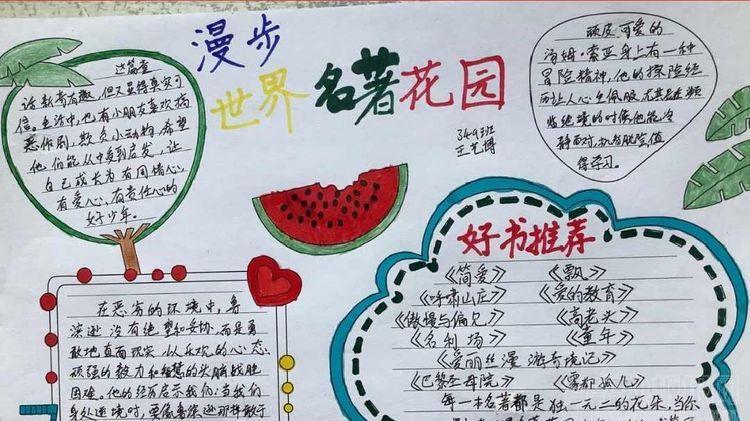 漫步
世界名著花园
349班
王艺博
这篇童
话新奇有趣,但又显得真实可
信。生活中,也有小朋友喜欢搞
恶作剧,欺负小动物,希望
他们能从中受到启发,让
自己成长为有同情心、
有爱心、有责任心的
好少年。
顽皮可爱的
汤姆·索亚身上有一种
冒险精神,他的探险经
历让人心生佩服,尤其是在频
临绝境的时候他能冷
静面对,机智脱险值
得学习。
在恶劣的环境中,鲁
滨逊没有绝望和妥协,而是勇
敢地直面现实,以乐观的心态、
顽强的毅力和智慧的头脑战胜
困难。他的经历启示我们:当我们
身处逆境时,要像鲁滨逊那样敢于
好书推荐
《简爱》 《飘》
《呼啸山庄》 《爱的教育》
《傲慢与偏见》 《高老头》
《名利场》 《童年》
《爱丽丝漫游奇境记》
《巴黎圣母院》 《雾都孤儿》
每一本名著都是独一无二的花朵,当你